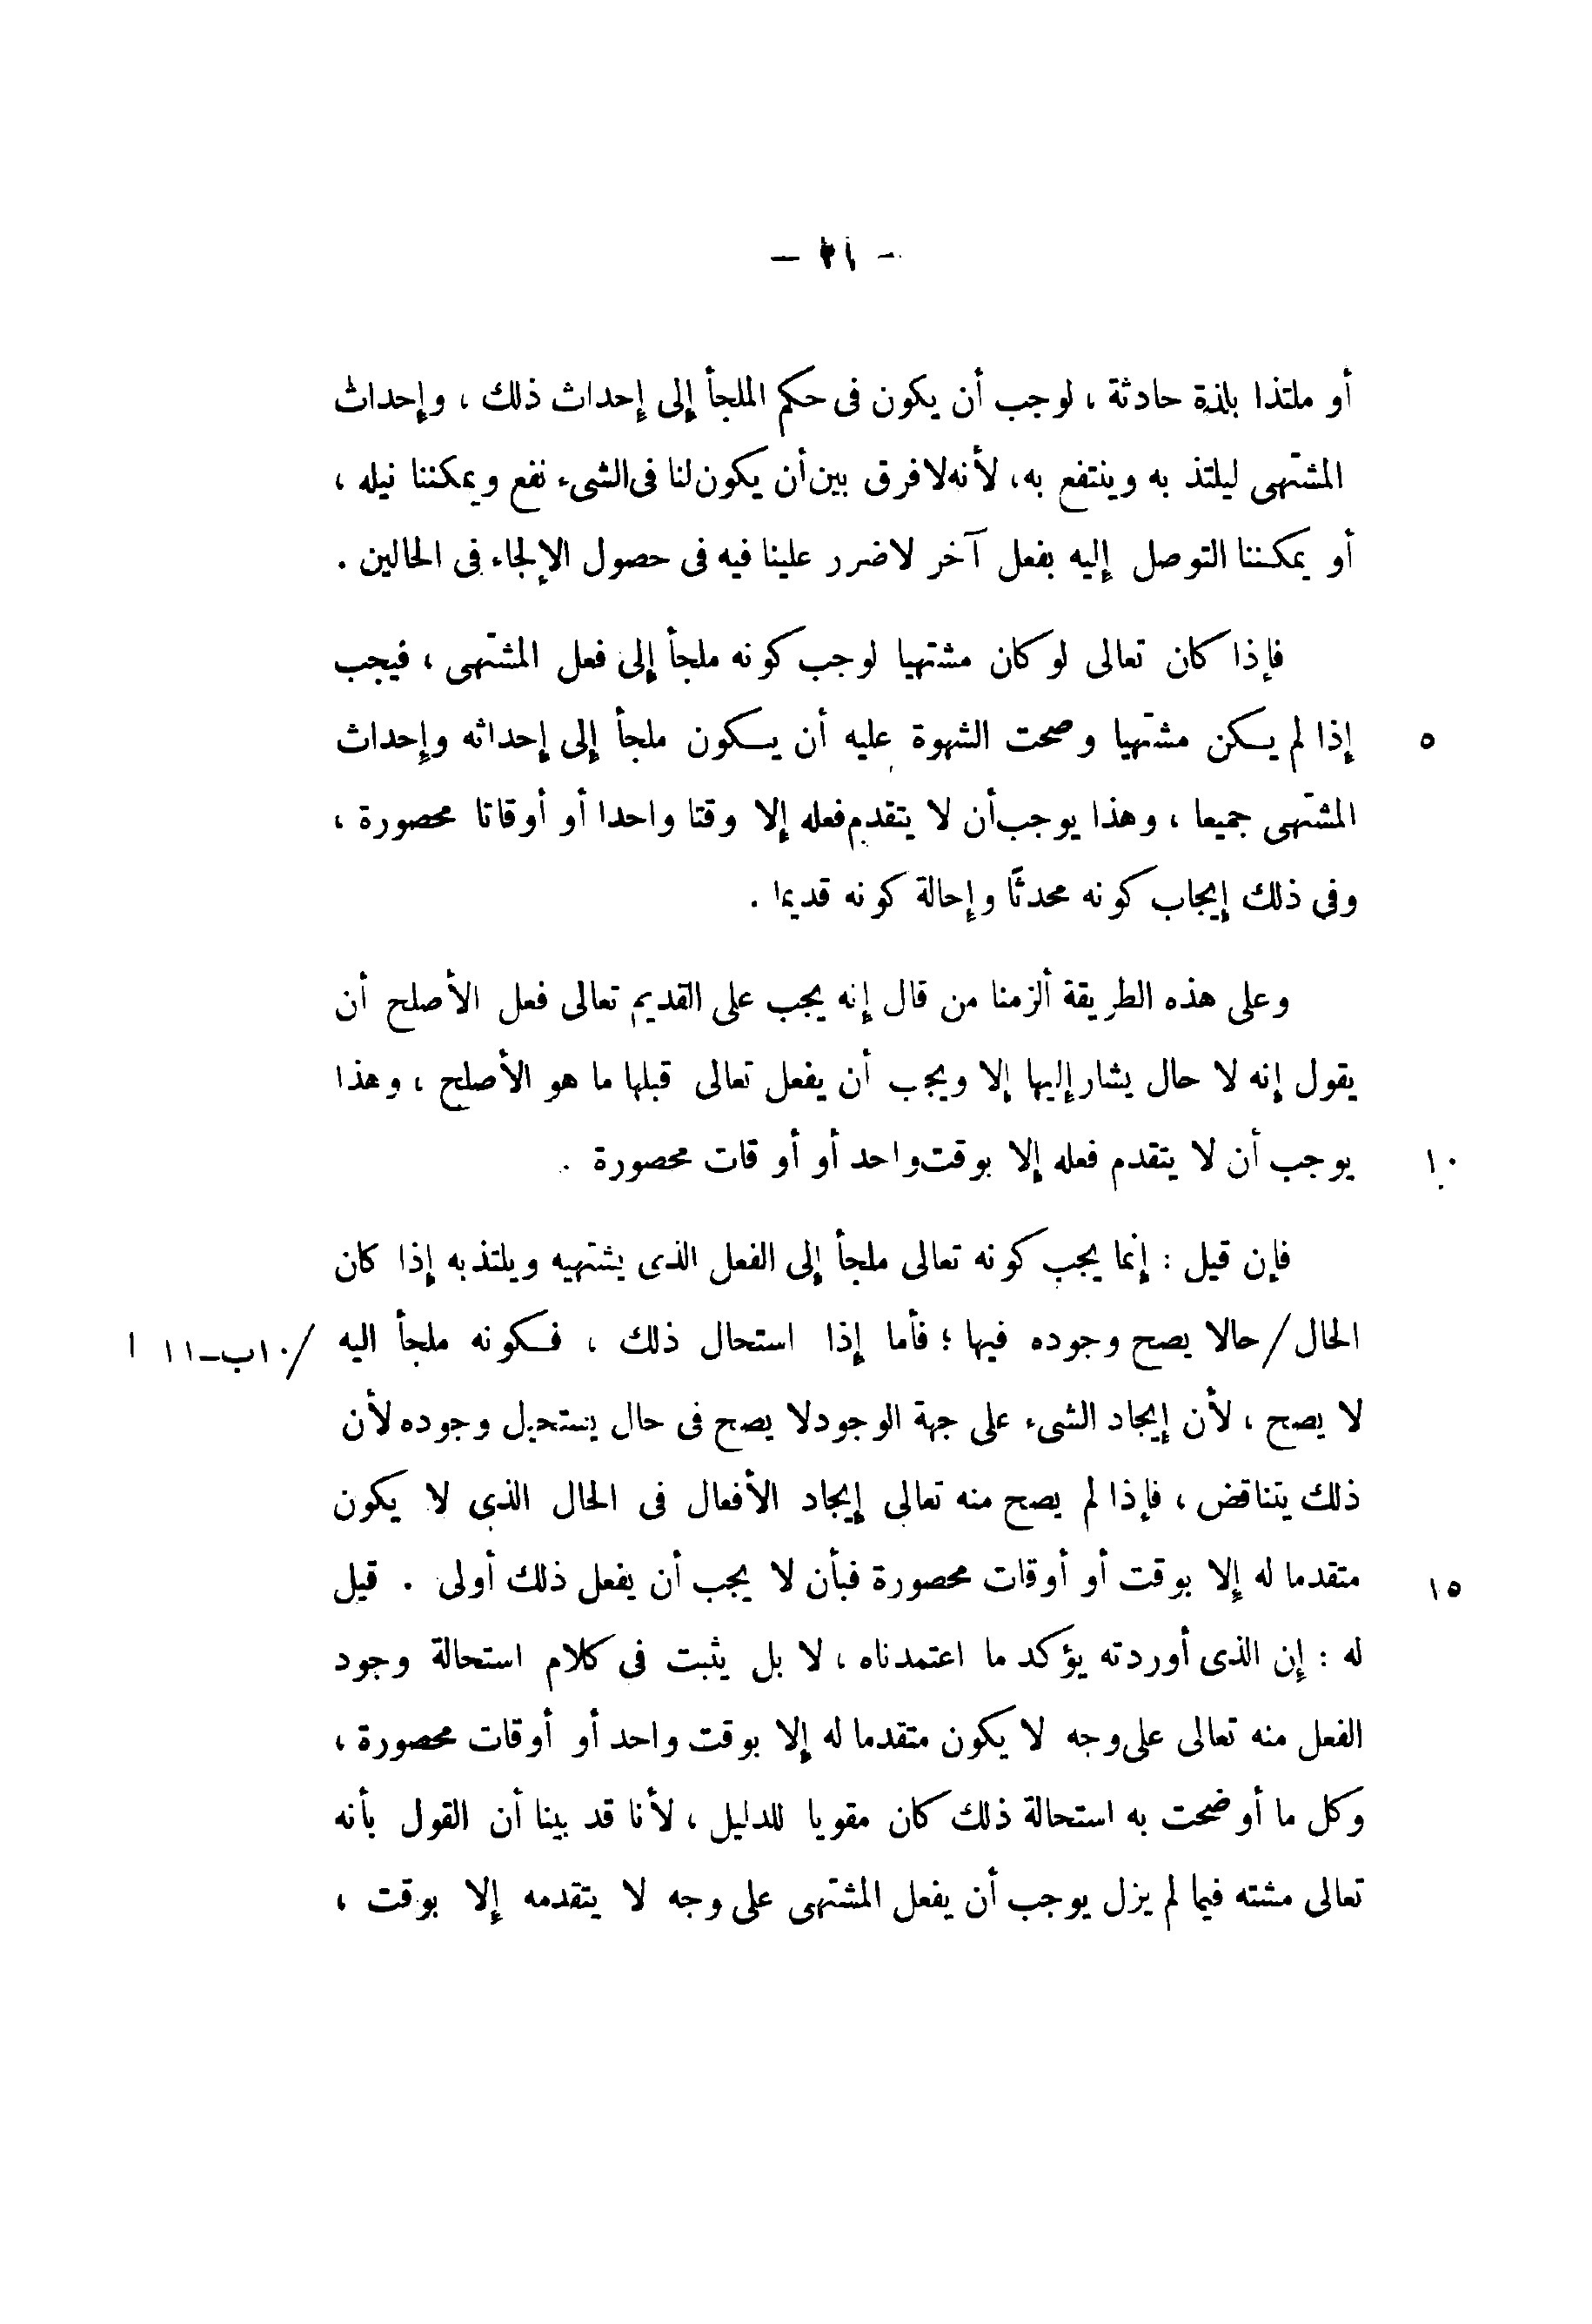 أو ملتذا بلذة حادثة ، لوجب أن يكون فى حكم الملجأ إلى إحداث ذلك ، وإحداث
المشتهى ليلتذ به وينتفع به، لأنه لا فرق بين أن يكون لنا فى الشىء نفع ويمكننا نيله ،
أو يمكننا التوصل إليه بفعل آخر لا ضرر علينا فيه فى حصول الإلجاء فى الحالين .
فإذا كان تعالى لو كان مشتهيا لوجب كونه ملجأ إلى فعل المشتهى ، فيجب
إذا لم يكن مشتهيا وصحت الشهوة عليه أن يكون ملجأ إلى إحداثه وإحداث ٥
المشتهى جميعا ، وهذا يوجب أن لا يتقدم فعله إلا وقتا واحدا أو أوقاتا محصورة ،
وفى ذلك إيجاب كونه محدثًا وإحالة كونه قديما .
وعلى هذه الطريقة ألزمنا من قال إنه يجب على القديم تعالى فعل الأصلح أن
يقول إنه لا حال يشار إليها إلا ويجب أن يفعل تعالى قبلها ما هو الأصلح ، وهذا
يوجب أن لا يتقدم فعله إلا بوقت واحد أو أوقات محصورة . ١٠
فإن قيل : إنما يجب كونه تعالى ملجأ إلى الفعل الذى يشتهيه ويلتذ به إذا كان
الحال / حالا يصح وجوده فيها ؛ فأما إذا استحال ذلك ، فكونه ملجأ اليه /١٠ب–١١ ا
لا يصح ، لأن إيجاد الشىء على جهة الوجود لا يصح فى حال يستحيل وجوده لأن
ذلك يتناقض ، فإذا لم يصح منه تعالى إيجاد الأفعال فى الحال الذى لا يكون
متقدما له إلا بوقت أو أوقات محصورة فبأن لا يجب أن يفعل ذلك أولى . قيل ١٥
له : إن الذى أوردته يؤكد ما اعتمدناه ، لا بل يثبت فى كلام استحالة وجود
الفعل منه تعالى على وجه لا يكون متقدما له إلا بوقت واحد أو أوقات محصورة ،
وكل ما أوضحت به استحالة ذلك كان مقويا للدليل ، لأنا قد بينا أن القول بأنه
تعالى مشته فيما لم يزل يوجب أن يفعل المشتهى على وجه لا يتقدمه إلا بوقت ،